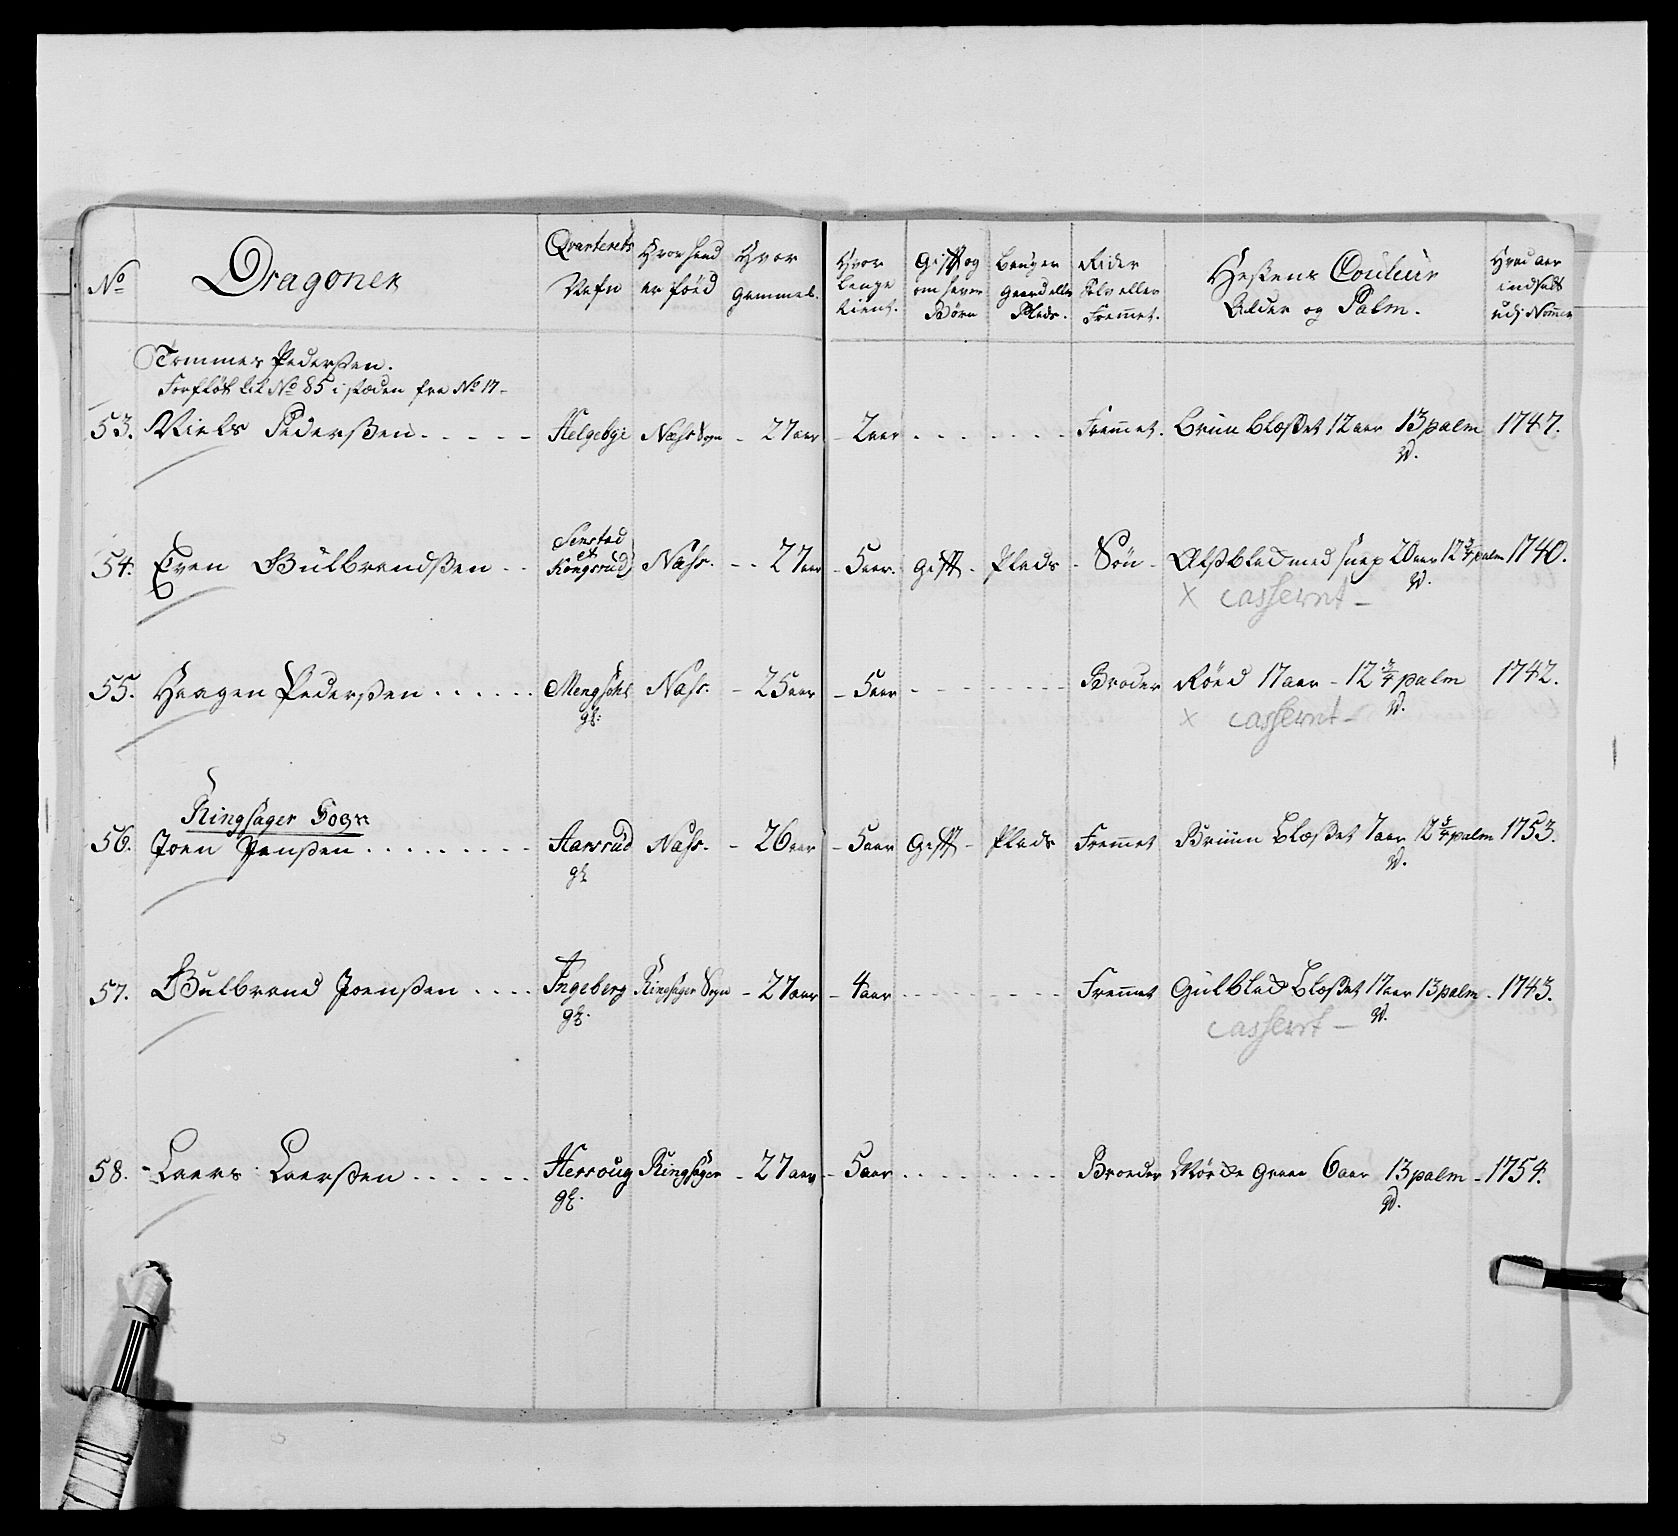 No Dragoner Qvarterets Nafn Hvor hand er föed Hvor Gammel. Hvor Lenge tient. Gift og om haver Börn Bruger Gaard eller Plads. Rider Selv eller Fremmet. Hestens Couleur Alder og Palm. Hvad aar indsadt udj Nommer
Tommes Pederßen.
Forflöt til No 85 i stæden fra No 17
53. Niels Pederßen Helgebye Næss Sogn 27 aar 2 aar Fremmet. Bruun Blæsset 12 aar 13 palm 1747.
D.
54. Even Gulbrandßen Senstad et Kongsrud Næss. 27 aar 5 aar. gift Plads Sön Alsblad med snep 20 aar 12 3/4 palm 1740.
D.
x Casseret
55. Haagen Pederßen Mengshol Næss. 25 aar 5 aar Broder Röed 17 aar 12 3/4 palm 1742.
g: D.
x Casseret
Ringsager Sogn
56. Joen Jenßen Aarsrud Næss. 26 aar 5 aar Gift Plads Fremmet Bruun Blæsset 7 aar 12 3/4 palm 1753.
D.
57. Gulbrand Joenßen Ingeberg Ringsager Sogn 27 aar 4 aar Fremmet Gulblad Blæsset 17 aar 13 palm 1743.
D.
Casseret
58. Laers Laerßen Hersoug Ringsager 27 aar 5 aar Broeder Mörke Graae 6 aar 13 palm 1754.
D.